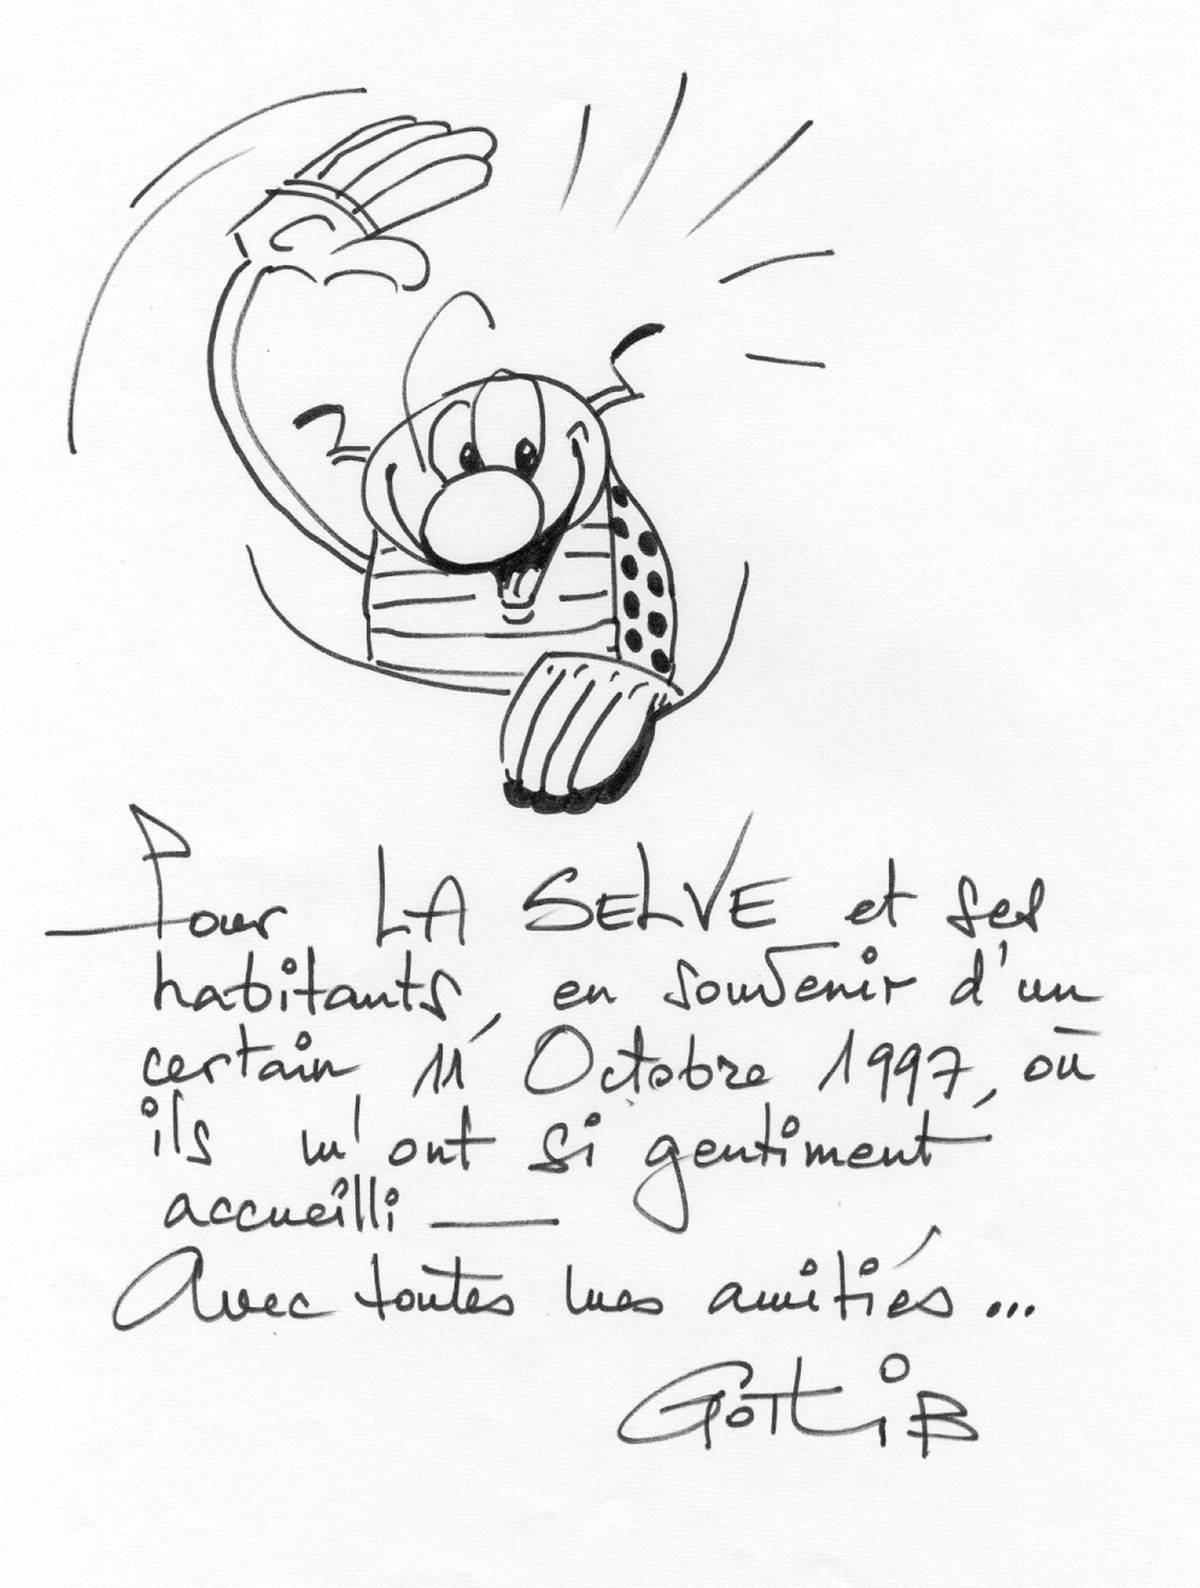 Pour LA SELVE et ses
habitants, en souvenir d'un
certain 11 Octobre 1997, où
ils m'ont si gentiment
accueilli —
Avec toutes mes amitiés...
GOTLIB